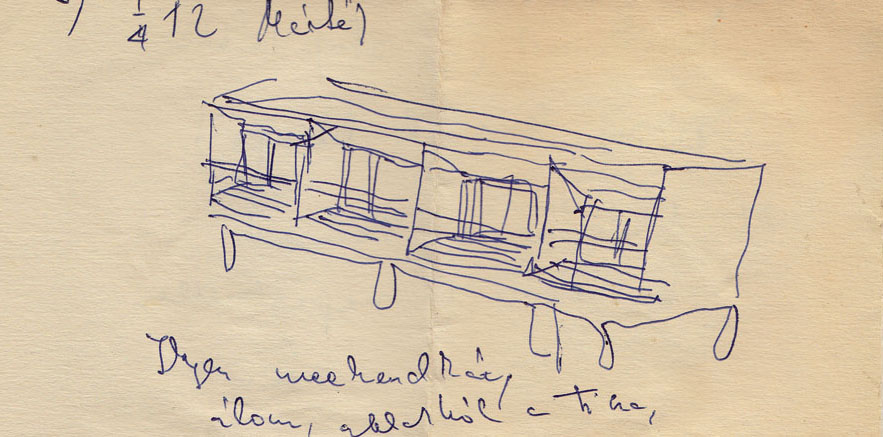 1/4 12
Ilyen weekendház,
álom, ablakból a Tisza,